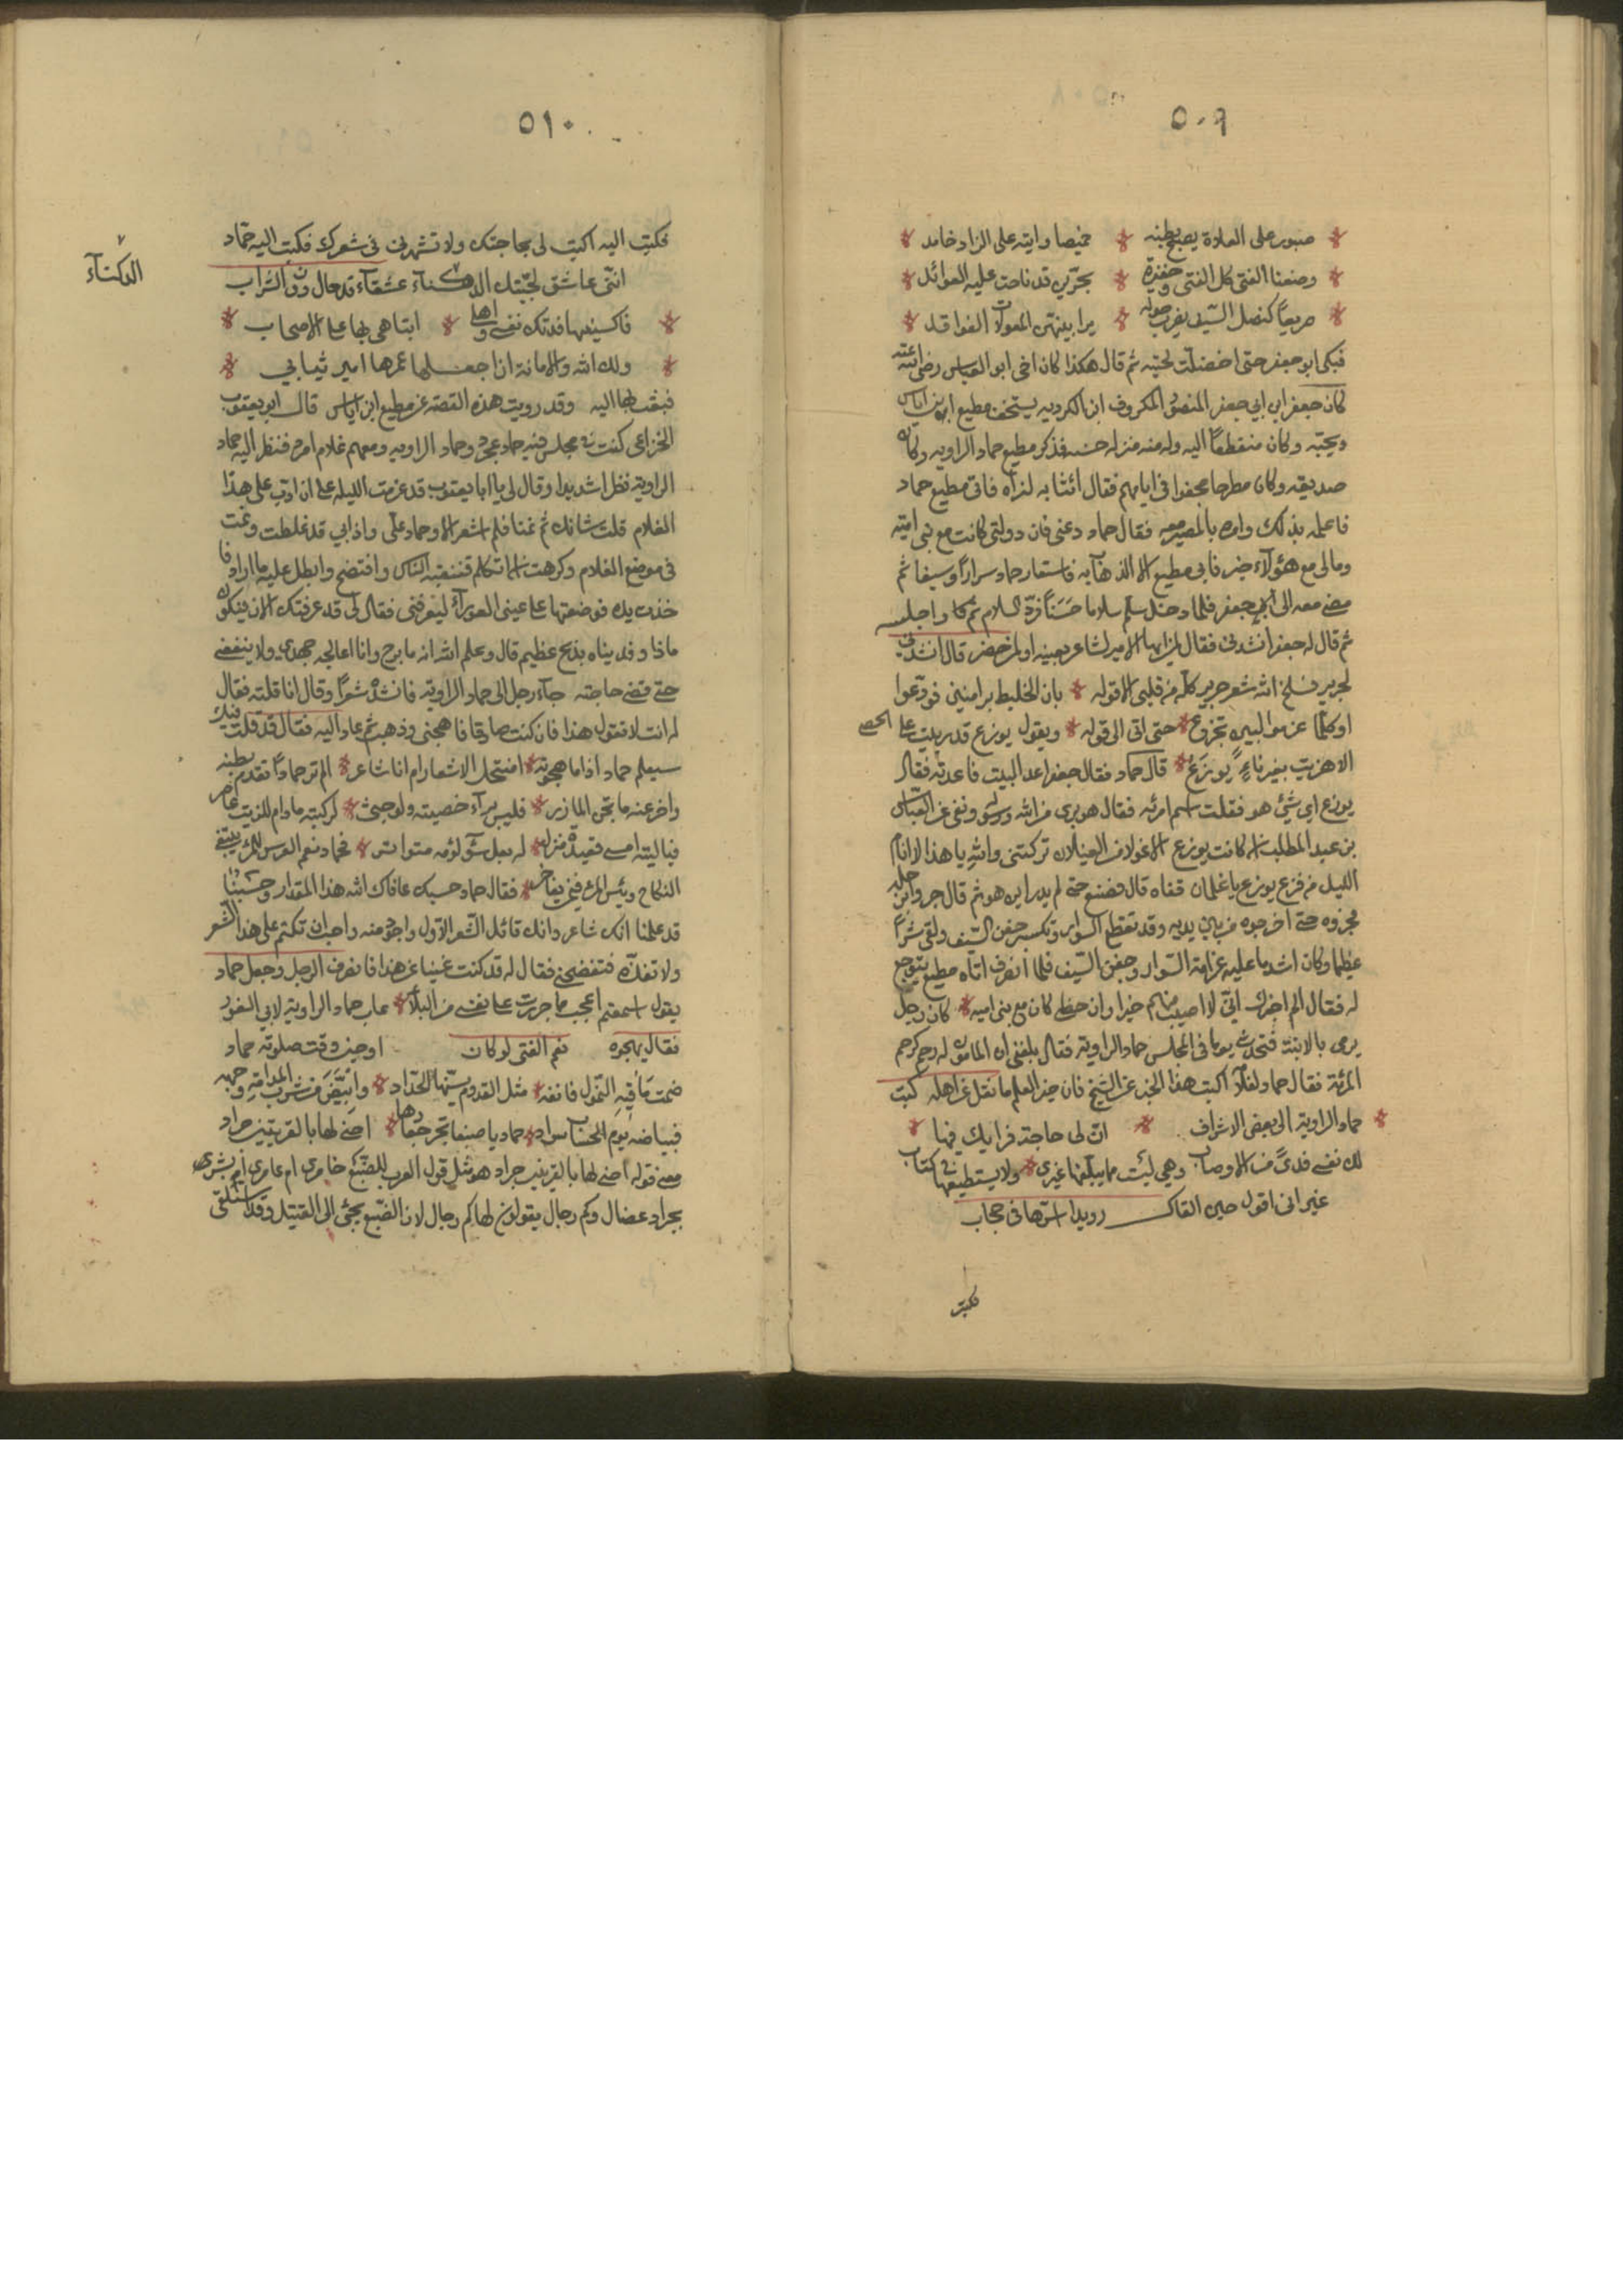 ٥٠٩
صبور على العلاة يصبح بطنه خميصا وايته على الزاد حامد
وضعنا الفتى كل الفتى حفيرة بحرين قد ناحت عليه العوائد
صريعا كنصل السيف يضرب حوله المعولات الفواقد
فبكى ابو جعفر حتى اخضلت لحيته ثم قال هكذا كان اخى ابو العباس رضى الله عنه
كان جعفر ابن ابي جعفر المنصور المكروف ابن الكرديه يستخف مطيع ابن اياس
ويحبه وكان منقطعا اليه وله منه منزله حسنه فذكر مطيع حماد الراويه وكان
صديقه وكان مطرحا مجفوا فى ايامهم فقال ائتنا به لنراه فاتى مطيع حماد
فاعلمه بذلك وامره بالمصير معه فقال حماد دعنى فان دولتى كانت مع بنى اميه
ومالى مع هؤلآء خير فابى مطيع الا الذهاب به فاستعار حماد سوادا وسيفا ثم
مضى معه الى جعفر فلما دخل سلم سلاما حسنا فرد السلام واجلسه
ثم قال له جعفر انشدنى فقال لمن ايها الامير لشاعر بعينه او لمن حضر قال انشدنى
لجرير فسلخ الله شعر جرير كله من قلبى الا قوله بان الخليط برامتين فودعوا
او كلما عزموا لبين تجزع حتى اتى الى قوله ويقول بوزع قد دببت على العصى
الا هزيت بغيرنا يا بوزع قال حماد فقال جعفر اعد البيت فاعدته فقال
بوزع اي شئ هو فقلت اسم امرئه فقال هو برى من الله ورسوله ونفى عن العباس
بن عبد المطلب ان كانت بوزع الا غولا من الغيلان تركتنى والله يا هذا لا انام
الليل من فزع بوزع يا غلمان قفاه قال فصفع حتى لم يدر اين هو ثم قال جروا برجله
فجروه حتى اخرجوه من بين يديه وقد تقطع السواد وتكسر جفن السيف ولقى شرا
عظيما وكان اشد ما عليه غرامة السواد وجفن السيف فلما انصرف اتاه مطيع يتوجع
له فقال الم اخبرك انى لا اصيب منهم خيرا وان حظى كان مع بنى اميه كان رجل
يرمى بالابنة فتحدث يوما فى مجلس حماد الراوية فقال بلغنى ان المأبون له رحم كرحم
المرئة فقال حماد لغلامه اكتب هذا الخبر عن الشيخ فان خير العلم ما نقل عن اهله كتب
حماد الراوية الى بعض الاشراف ان لى حاجة فرايك فيها
لك نفسى فدى من الاوصاب وهى ليست مما يبلغها غيرى ولا يستطيعها فى كتاب
غير انى اقول حين القاك رويدا اسرها فى حجاب
فكتب
٥١٠
فكتب اليه اكتب لى بحاجتك ولا تشهرنى فى شعرك فكتب اليه حماد
اننى عاشق لجبتك الدكناء عشقآء قد حال دون الشراب
فاكسنيها فدتك نفسى واهلى اتباهى بها على الاصحاب
ولك الله والامانة ان اجعلها عمرها امير ثيابي
فبعث بها اليه وقد رويت هذه القصة عن مطيع ابن اياس قال ابو يعقوب
الخزاعى كنت فى مجلس فيه حماد عجرد وحماد الراويه ومعهم غلام امرد فنظر اليه حماد
الراوية نظرا شديدا وقال لى يا ابا يعقوب قد عزمت الليله على ان ادب على هذا
الغلام قلت شانك ثم نمنا فلم اشعر الا وحماد على واذابي قد غلطت ونمت
فى موضع الغلام وكرهت ان اتكلم فتنتبه الناس وافتضح وابطل عليه ما اراد
خذت يده فوضعتها على عينى العورآء ليعرفنى فقال لى قد عرفتك الان فيكون
ماذا وفديناه بذبح عظيم قال وعلم الله انه ما برح وانا اعالجه جهدى ولا ينفعنى
حتى قضى حاجته جآء رجل الى حماد الراوية فانشده شعرا وقال انا قلته فقال
له انت لا تقول هذا فان كنت صادقا فاهجنى وذهب ثم عاد اليه فقال قد قلت فيك
سيعلم حماد اذا ما هجوته انتحل الاشعار ام انا شاعر الم تر حمادا تقدم بطنه
واخر عنه ما تجن المازر فليس برآء خصيته ولو جثى لركبته مادام للزيت عاصر
فياليته امسى قعيدة منزله له بعل سوء لؤمه متواتر فحماد نعم العرس للمرء يبتغى
النكاح وبئس المرء فيمن يفاخر فقال حماد حسبك عافاك الله هذا المقدار وحسبنا
قد علمنا انك شاعر وانك قائل الشعر الاول واجود منه واحب ان تكتم على هذا الشعر
ولا تفضحنى فقال له قد كنت غنيا عن هذا فانصرف الرجل وجعل حماد
يقول اسمعتم اعجب ما جررت على نفسى من البلآء عاب حماد الراوية لابى الغول
فقال يهجوه نعم الفتى لو كان اوحين وقت صلوته حماد
مشافيه الشمول فانفه مثل القدوم يسنها الحداد وابيض من شرب المدامة وجهه
فبياضه يوم الحساب سواد حماد يا ضبعا تجر جعارها اخنى لها بالقريتين جراد
معنى قوله اخنى لها بالقريتين جراد هو مثل قول العرب للضبع خامرى ام عامر ابشرى
بجراد عضال وكم رجال يقولون لها كم رجال لان الضبع يجئ الى القتيل وقد استلقى
الدكنآء